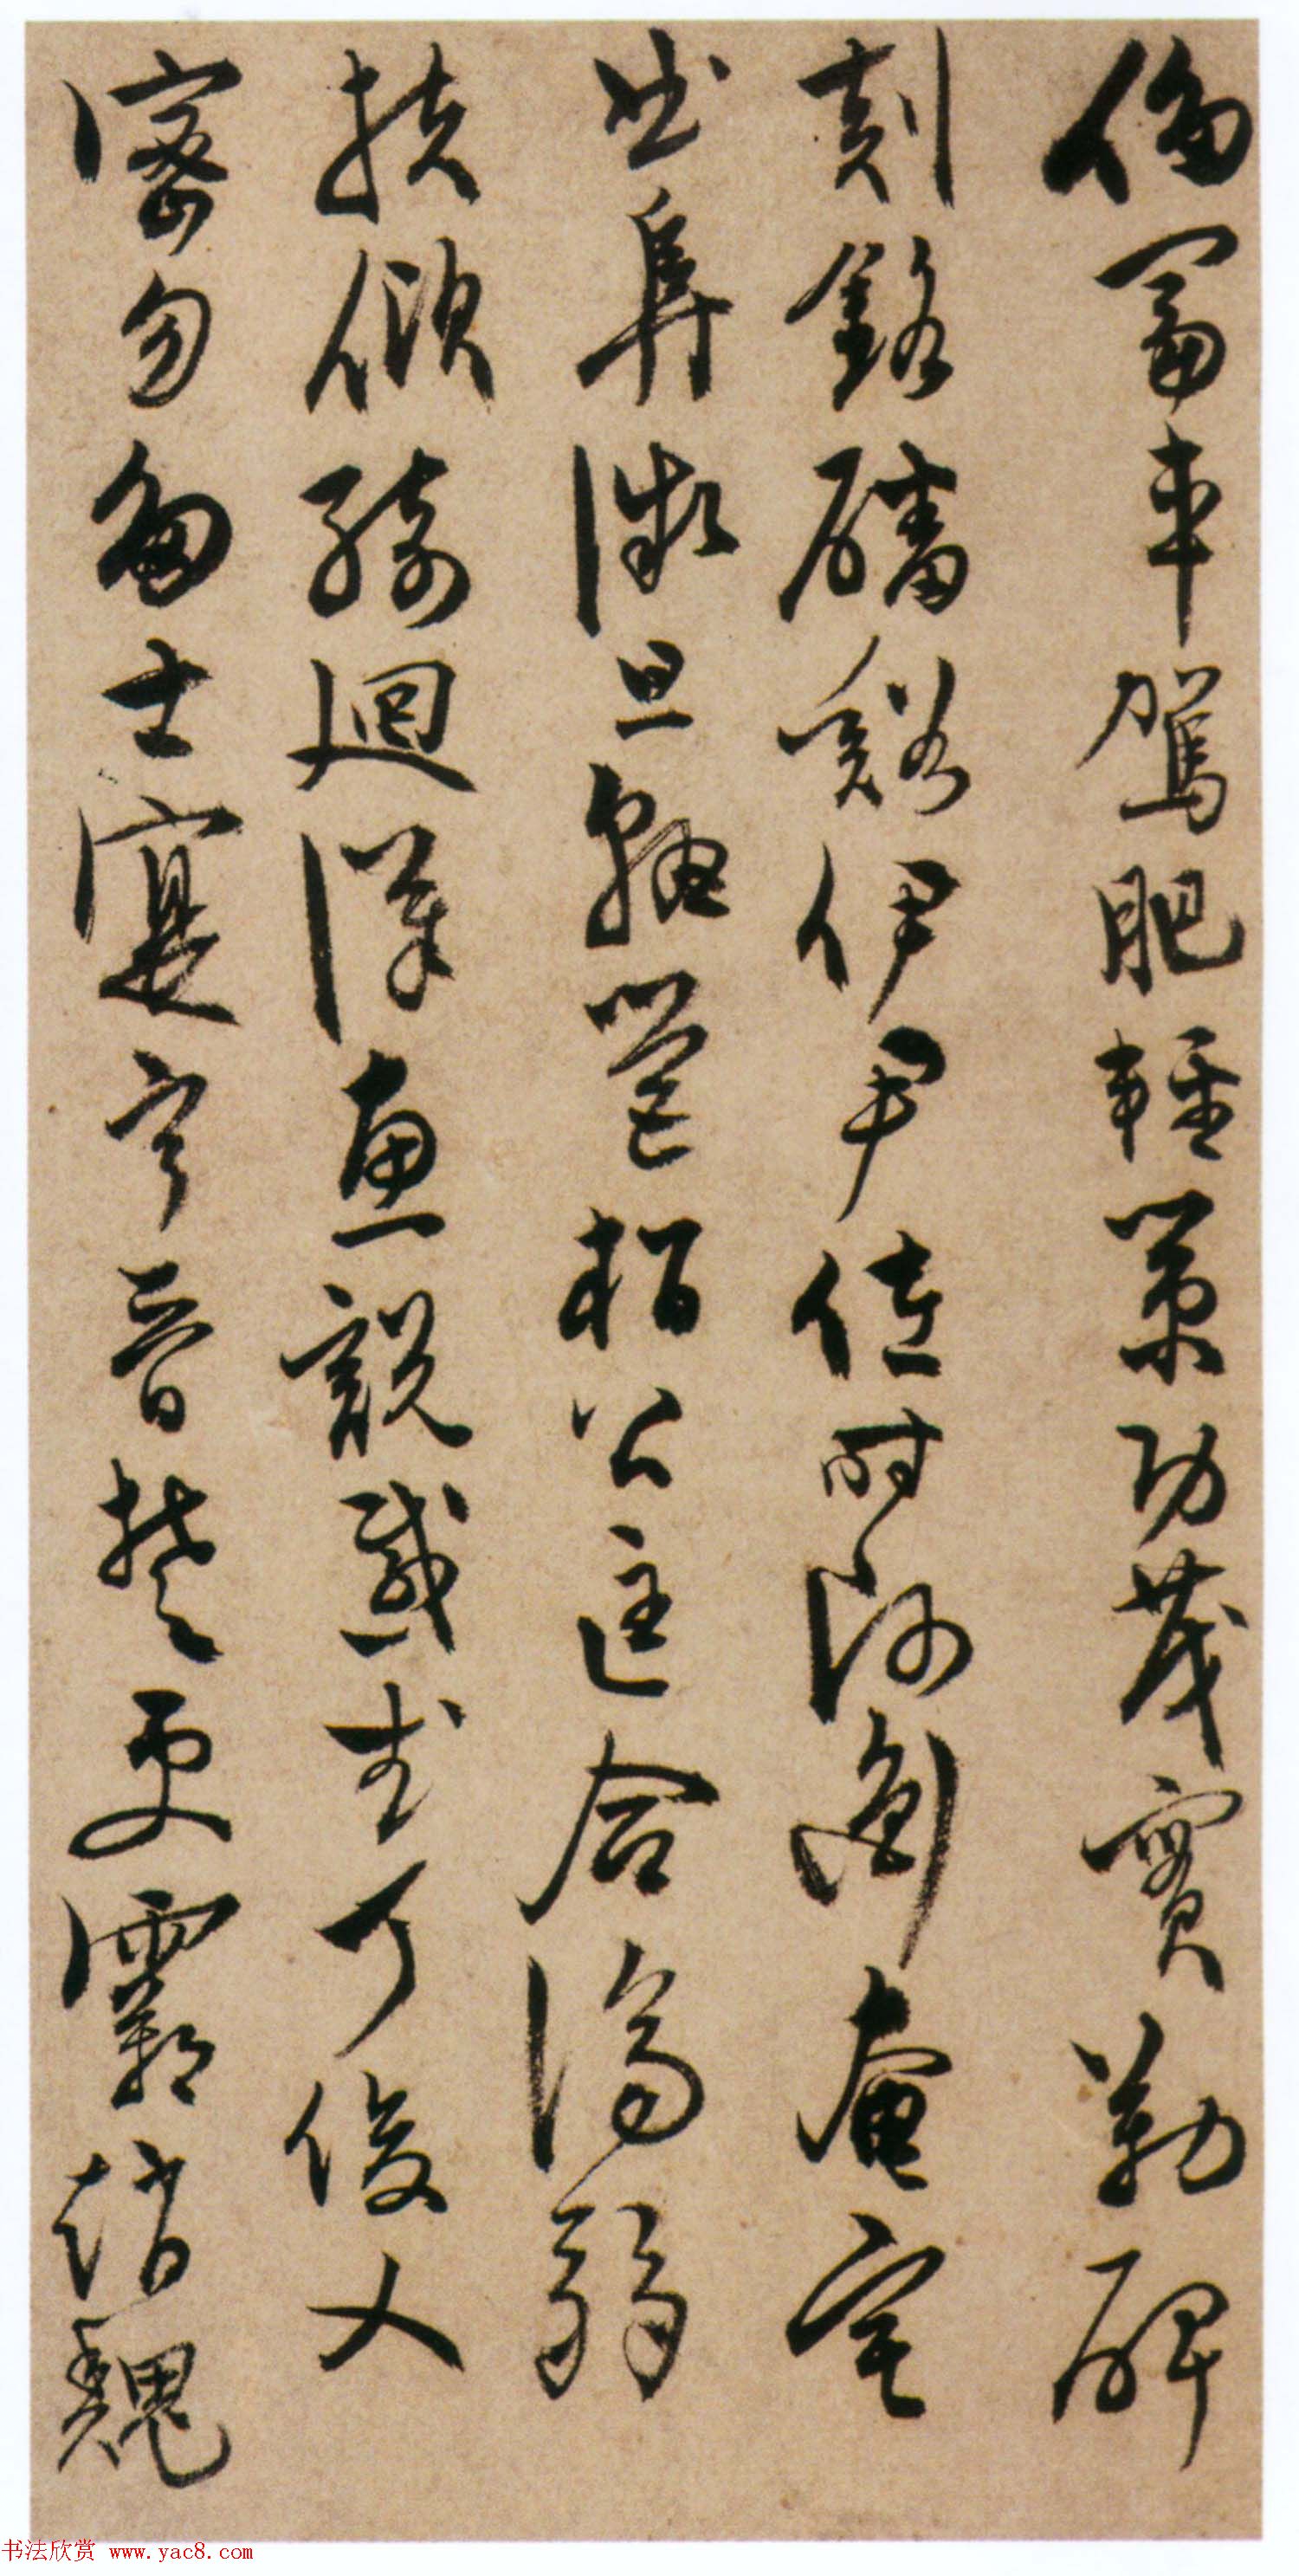 侈富車駕肥輕策功茂實勒碑
刻銘磻谿伊尹佐時阿衡奄宅
曲阜微旦孰營桓公匡合濟弱
扶傾綺迴漢惠說感武丁俊乂
密勿多士寔寧晉楚更霸趙魏
书法欣赏 www.yac8.com